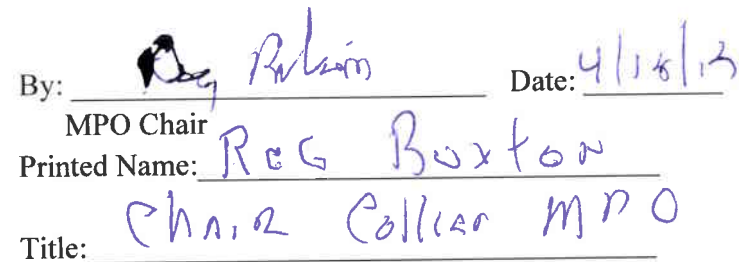 By: Date: 4/18/13
MPO Chair
Printed Name: ReG Buxton
Title: Chair Collier MPO